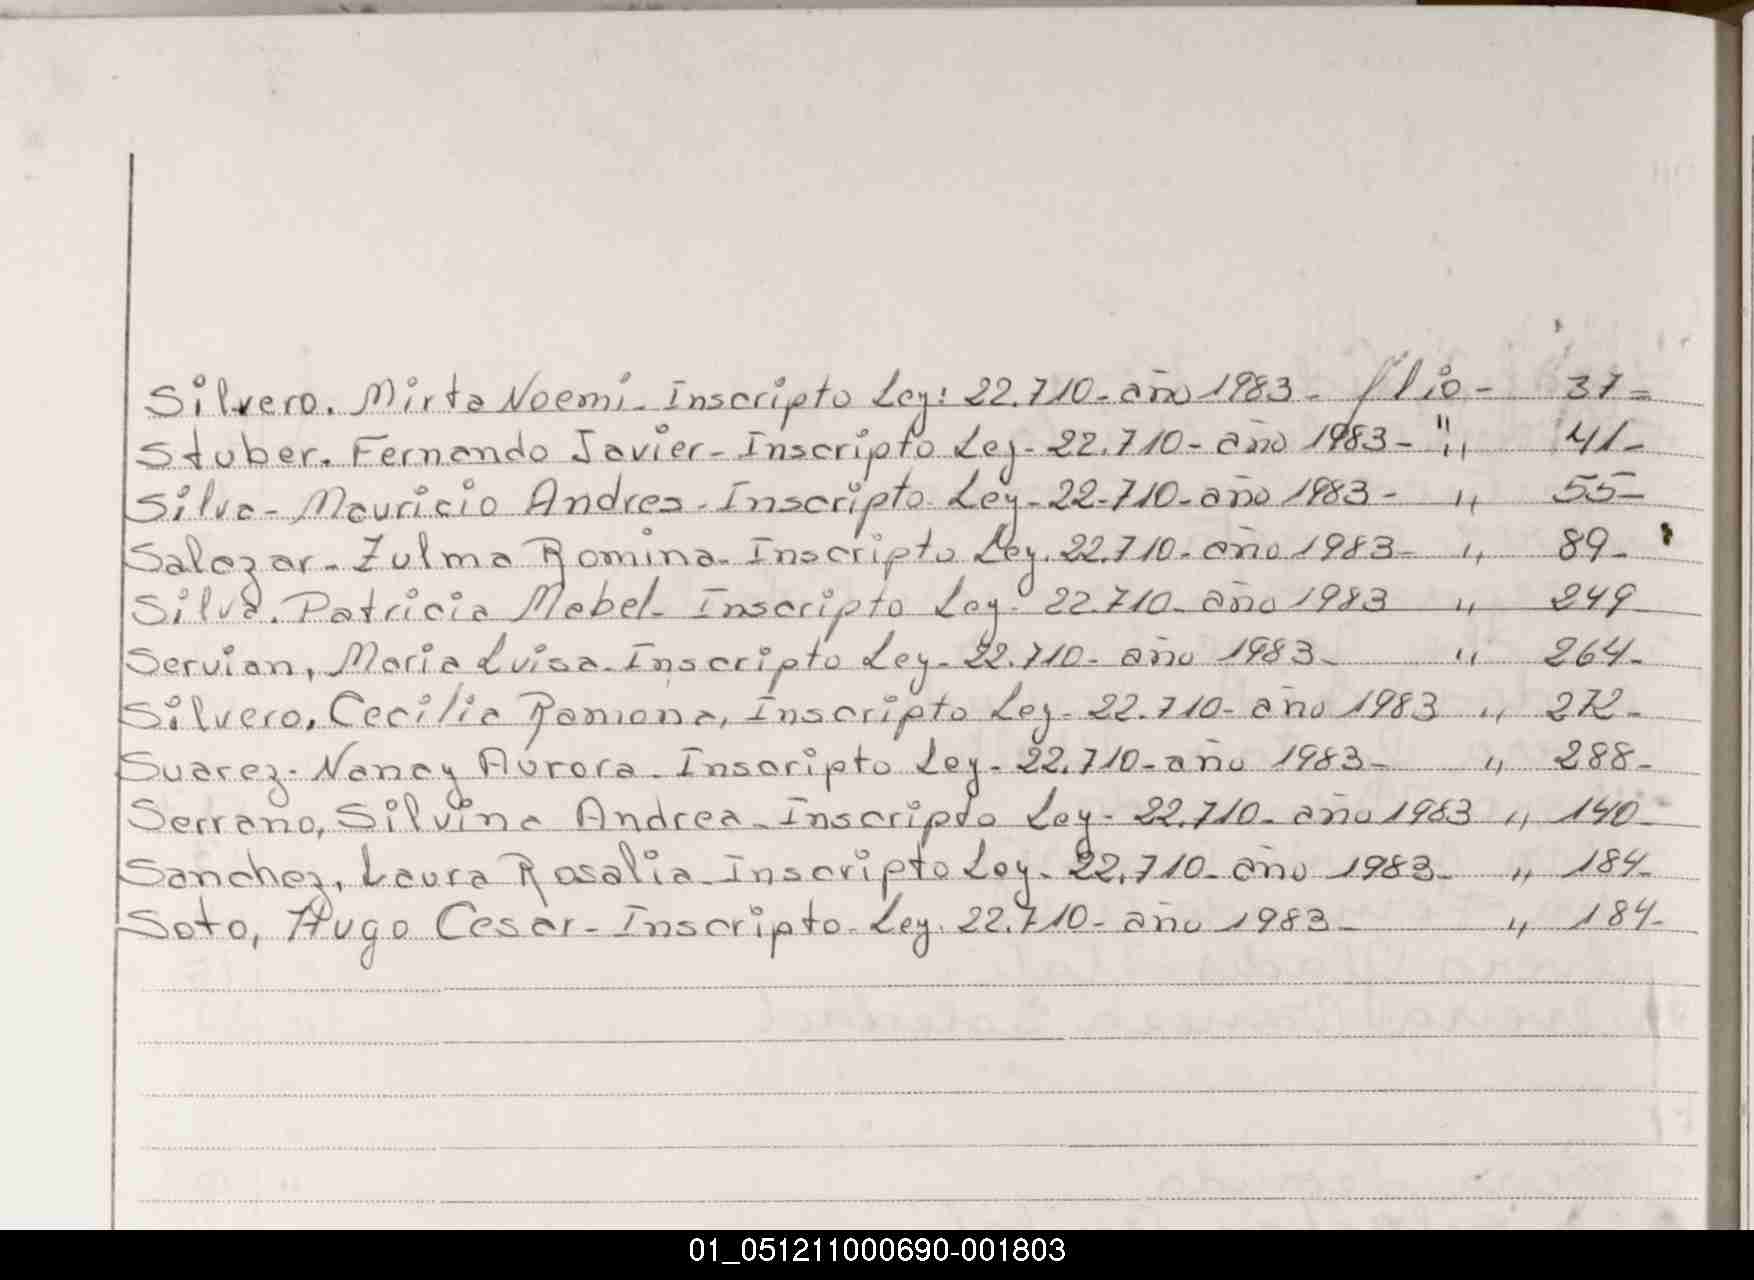 Silvero. Mirta Noemi - Inscripto Ley: 22.710 - año 1983 - flio - 37 =
Stuber. Fernando Javier - Inscripto Ley - 22.710 - año 1983 - " „ 41 -
Silva - Mauricio Andres - Inscripto Ley - 22.710 - año 1983 - „ 55 -
Salazar - Zulma Romina - Inscripto Ley. 22.710 - año 1983 - „ 89 -
Silva. Patricia Mabel - Inscripto Ley - 22.710 - año 1983 „ 249
Servian, Maria Luisa - Inscripto Ley - 22.710 - año 1983 - „ 264 -
Silvero, Cecilia Ramona, Inscripto Ley - 22.710 - año 1983 „ 272 -
Suarez - Nancy Aurora - Inscripto Ley - 22.710 - año 1983 - „ 288 -
Serrano, Silvina Andrea - Inscripto Ley - 22.710 - año 1983 „ 140 -
Sanchez, Laura Rosalia - Inscripto Ley - 22.710 - año 1983 - „ 184 -
Soto, Hugo Cesar - Inscripto - Ley. 22.710 - año 1983 - „ 184 -
01_051211000690-001803